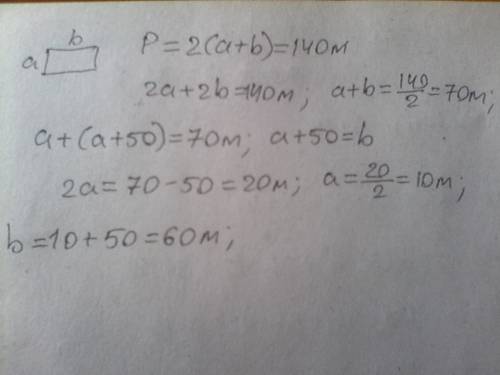 b
a
P = 2(a+b) = 140м
2a + 2b = 140м; a+b = 140/2 = 70м;
a + (a+50) = 70м; a+50 = b
2a = 70 - 50 = 20м; a = 20/2 = 10м;
b = 10 + 50 = 60м;